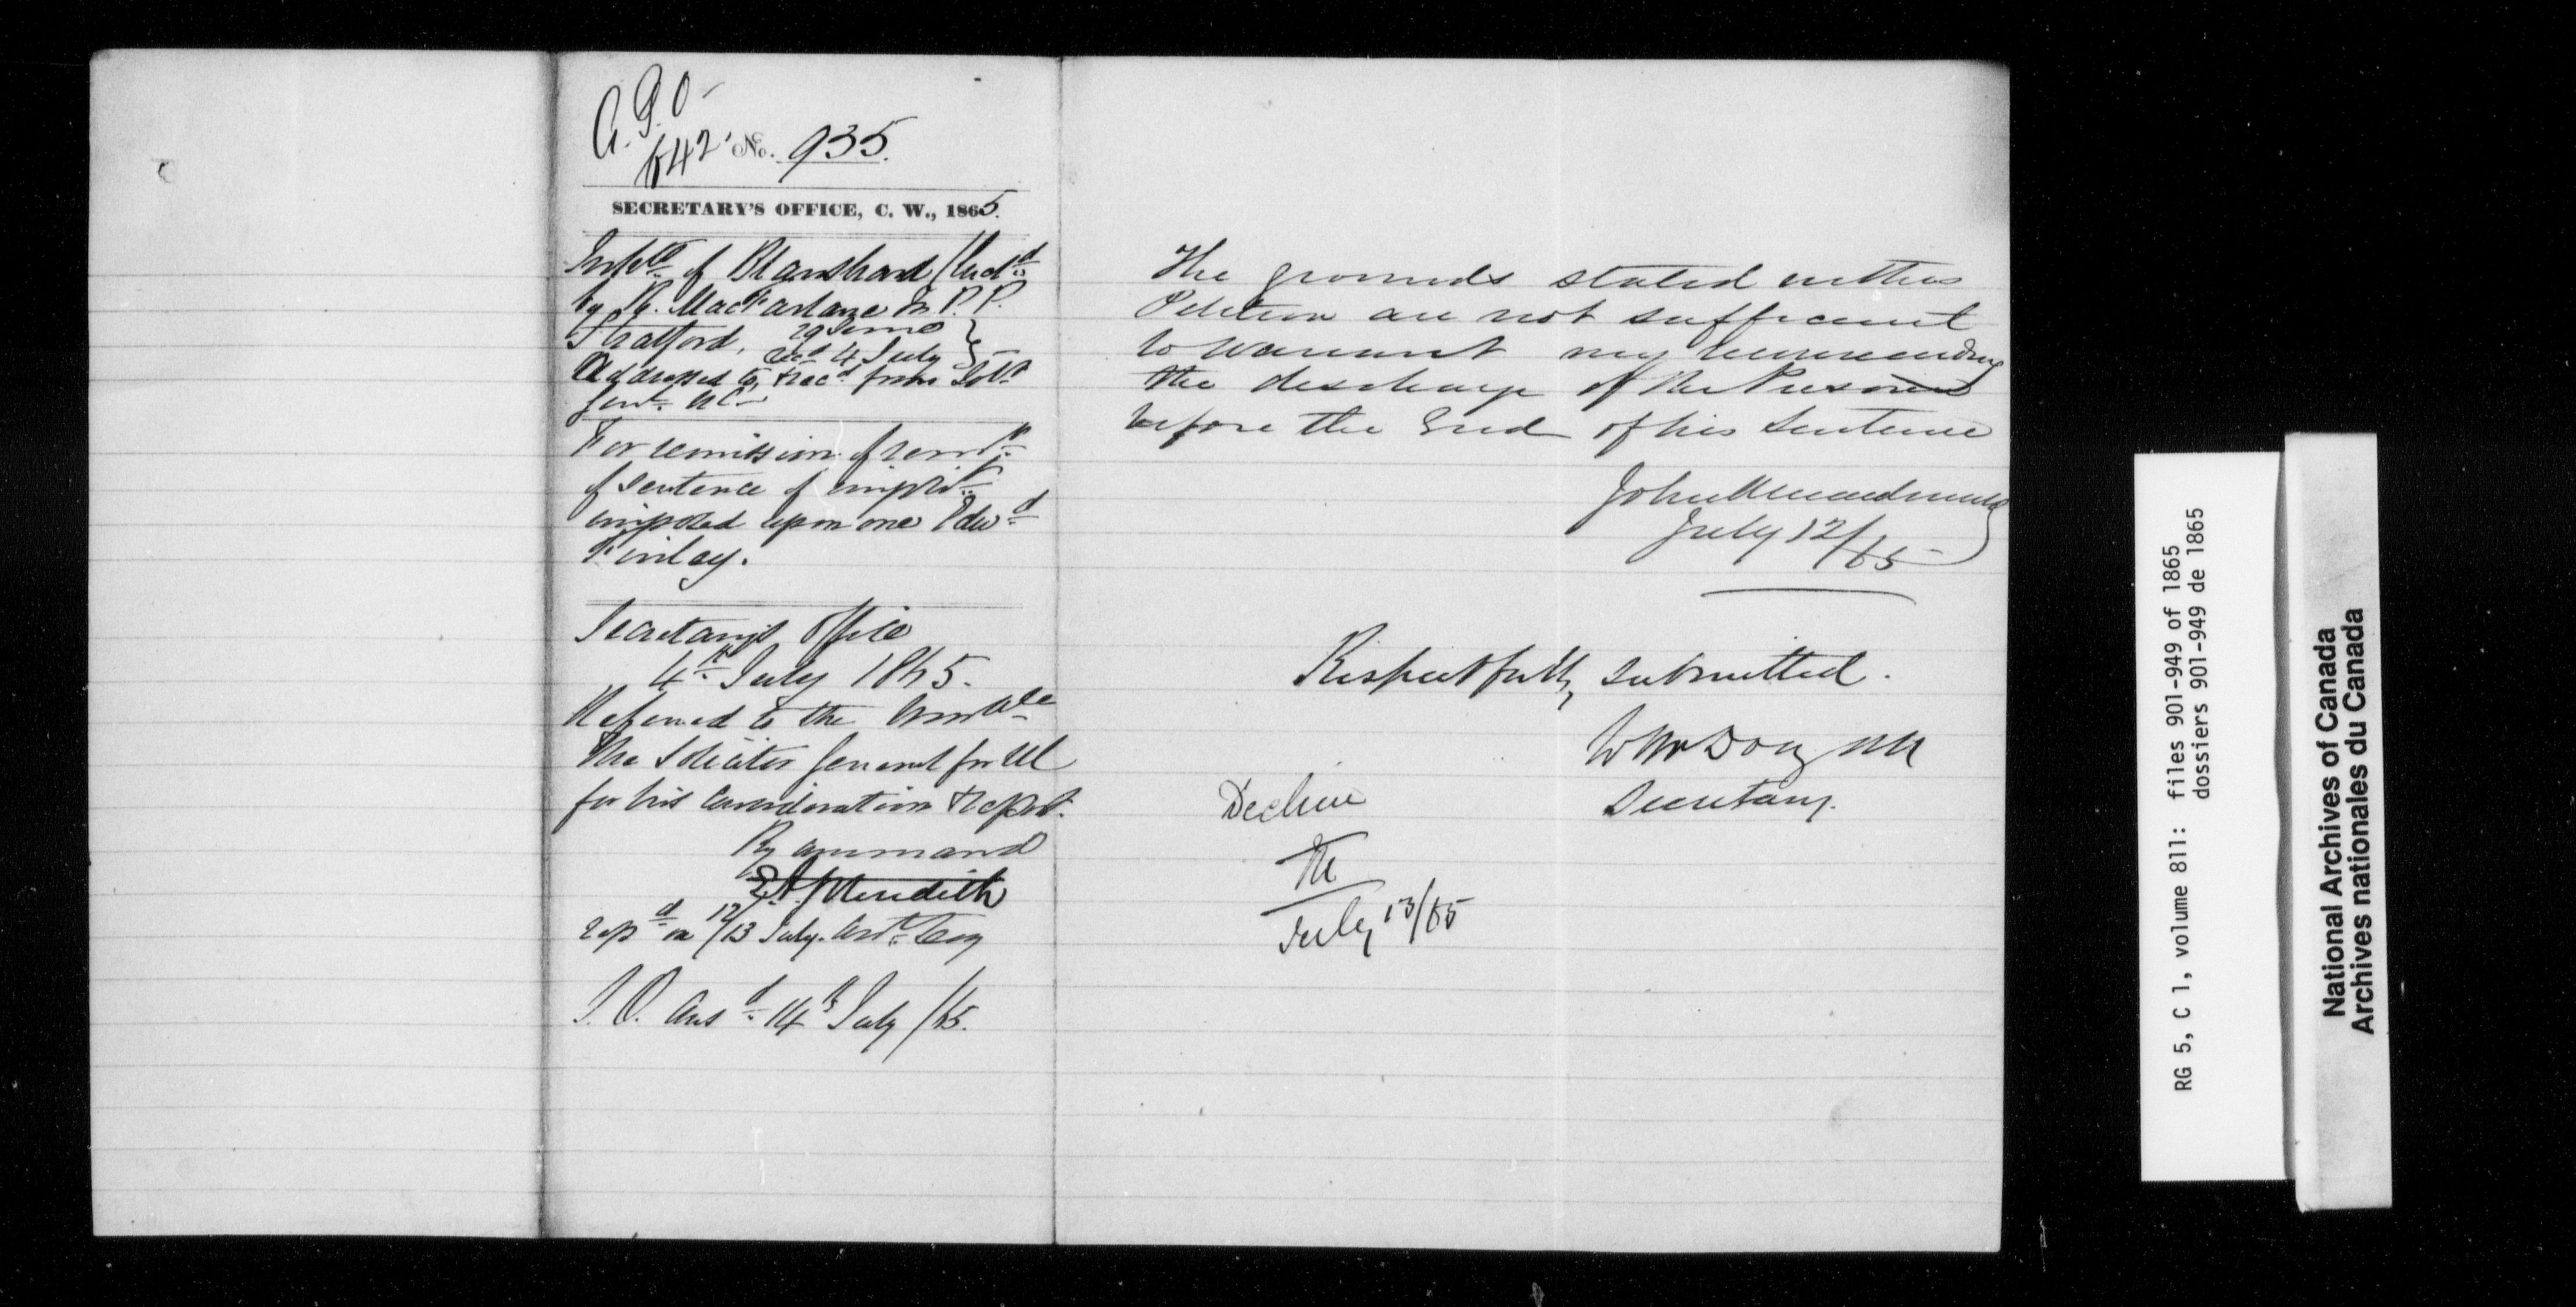 A.G.O-
642 No. 935.
SECRETARY'S OFFICE, C. W., 1865.
of Blanshard /
by R. MacFarlane M.P.P.
Stratford, 29 June }
recd 4 July }
Addressed to, & recd from Solr
Genl. UC
For remission of remr
of sentence of imprist
imposed upon one Edwd
Finlay.
Secretary's Office
4th July 1865.
Referred to the Honble
the Solicitor General for UC
for his Consideration & report.
By command
E A Meredith
Repd on 12/13 July. Asst Secy
S.O. Ansd 14th July /65.
The grounds stated in this
Petition are not sufficient
to warrant my recommending
the discharge of the Prisoner
before the End of his Sentence
July 12/65
Respectfully submitted.
Wm McDougall
Secretary.
Decline
M
July 13/65
RG 5, C 1, volume 811: files 901-949 of 1865
dossiers 901-949 de 1865
National Archives of Canada
Archives nationales du Canada